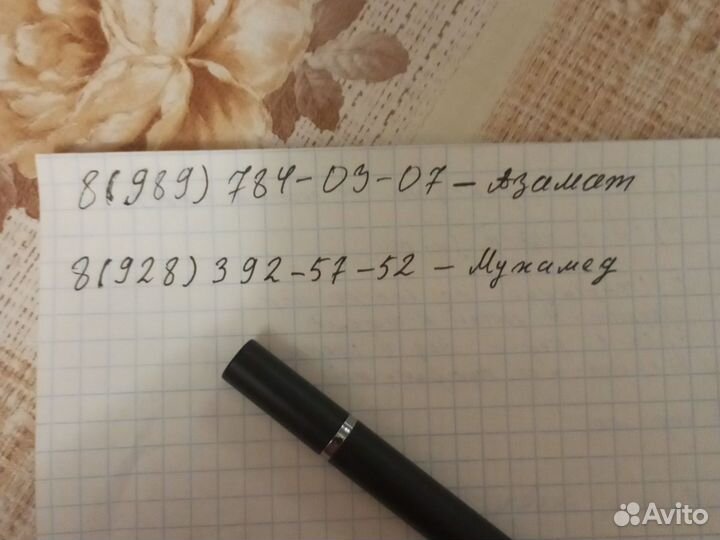 8(989) 784-03-07 - Азамат
8(928) 392-57-52 - Мухамед
Avito